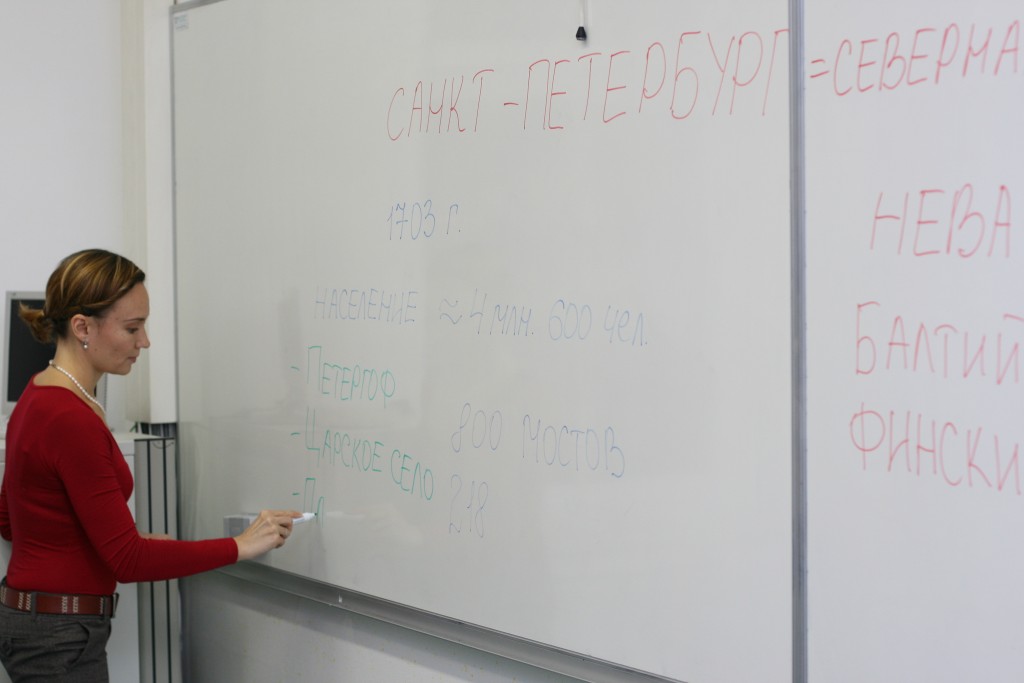 САНКТ-ПЕТЕРБУРГ = СЕВЕРНА
1703 г.
НЕВА
НАСЕЛЕНИЕ ≈ 4 млн. 600 чел.
БАЛТИЙ
- ПЕТЕРГОФ
ФИНСКИ
- ЦАРСКОЕ СЕЛО
800 МОСТОВ
- Па
218